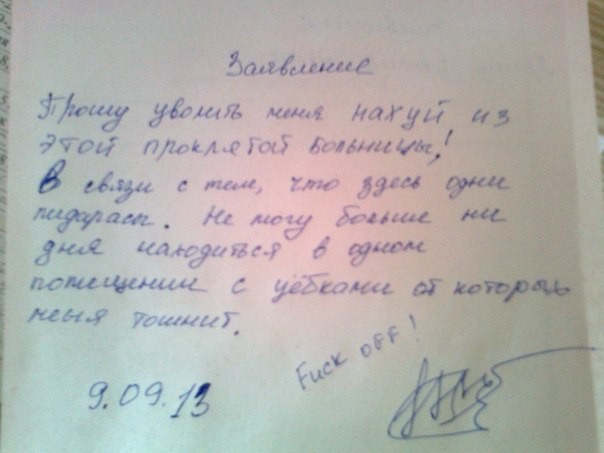 Заявление
Прошу уволить меня нахуй из
этой проклятой больницы!
В связи с тем, что здесь одни
пидарасы. Не могу больше ни
дня находиться в одном
помещении с уёбками от которых
меня тошнит.
Fuck off!
9.09.13